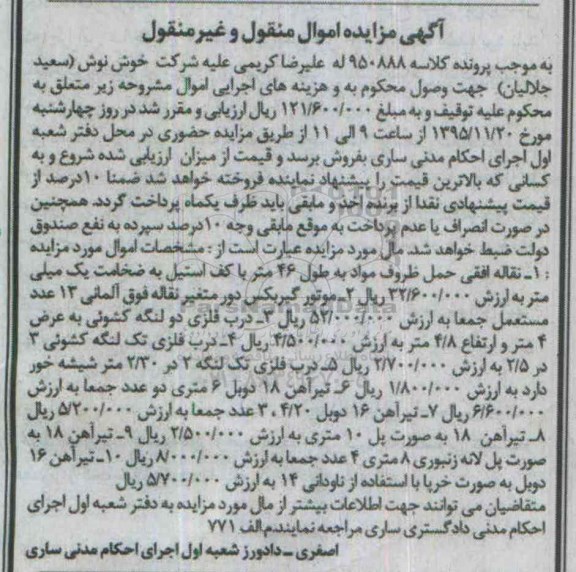 آگهی مزایده اموال منقول و غیر منقول
به موجب پرونده کلاسه ۹۵۰۸۸۸ له علیرضا کریمی علیه شرکت خوش نوش (سعید
جلالیان) جهت وصول محکوم به و هزینه های اجرایی اموال مشروحه زیر متعلق به
محکوم علیه توقیف و به مبلغ ۱۲۱/۶۰۰/۰۰۰ ریال ارزیابی و مقرر شد در روز چهارشنبه
مورخ ۱۳۹۵/۱۱/۲۰ از ساعت ۹ الی ۱۱ از طریق مزایده حضوری در محل دفتر شعبه
اول اجرای احکام مدنی ساری بفروش برسد و قیمت از میزان ارزیابی شده شروع و به
کسانی که بالاترین قیمت را پیشنهاد نماینده فروخته خواهد شد ضمنا ۱۰درصد از
قیمت پیشنهادی نقدا از برنده اخذ و مابقی باید ظرف یکماه پرداخت گردد. همچنین
در صورت انصراف یا عدم پرداخت به موقع مابقی وجه ۱۰درصد سپرده به نفع صندوق
دولت ضبط خواهد شد. مال مورد مزایده عبارت است از : مشخصات اموال مورد مزایده
: ۱ـ نقاله افقی حمل ظروف مواد به طول ۴۶ متر با کف استیل به ضخامت یک میلی
متر به ارزش ۳۲/۶۰۰/۰۰۰ ریال ۲ـ موتور گیربکس دور متغیر نقاله فوق آلمانی ۱۳ عدد
مستعمل جمعا به ارزش ۵۲/۰۰۰/۰۰۰ ریال ۳ـ درب فلزی دو لنگه کشوئی به عرض
۴ متر و ارتفاع ۴/۸ متر به ارزش ۴/۵۰۰/۰۰۰ ریال ۴ـ درب فلزی تک لنگه کشوئی ۳
در ۲/۵ به ارزش ۲/۷۰۰/۰۰۰ ریال ۵ـ درب فلزی تک لنگه ۲ در ۲/۳۰ متر شیشه خور
دارد به ارزش ۱/۸۰۰/۰۰۰ ریال ۶ـ تیرآهن ۱۸ دوبل ۶ متری دو عدد جمعا به ارزش
۶/۶۰۰/۰۰۰ ریال ۷ـ تیرآهن ۱۶ دوبل ۴/۲۰ ، ۳ عدد جمعا به ارزش ۵/۲۰۰/۰۰۰ ریال
۸ـ تیرآهن ۱۸ به صورت پل ۱۰ متری به ارزش ۲/۵۰۰/۰۰۰ ریال ۹ـ تیرآهن ۱۸ به
صورت پل لانه زنبوری ۸ متری ۴ عدد جمعا به ارزش ۸/۰۰۰/۰۰۰ ریال ۱۰ـ تیرآهن ۱۶
دوبل به صورت خرپا با استفاده از ناودانی ۱۴ به ارزش ۵/۷۰۰/۰۰۰ ریال
متقاضیان می توانند جهت اطلاعات بیشتر از مال مورد مزایده به دفتر شعبه اول اجرای
احکام مدنی دادگستری ساری مراجعه نمایند.م/الف ۷۷۱
اصغری ـ دادورز شعبه اول اجرای احکام مدنی ساری